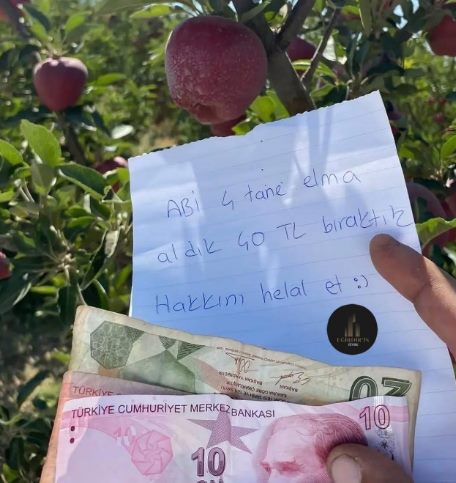 ABİ 4 tane elma
aldık 40 TL bıraktık
Hakkını helal et :)
TÜRKİYE CUMHURİYET MERKEZ BANKASI
10
10
20